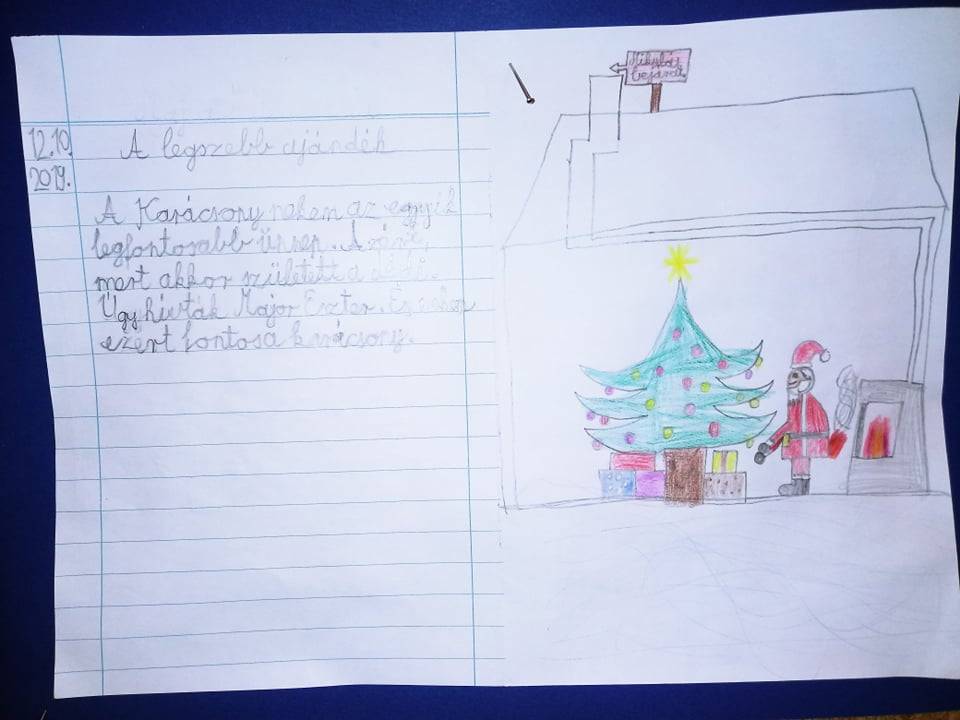 12.10.
2019.
A legszebb ajándék
A Karácsony nekem az egyik
legfontosabb ünnep. Azért,
mert akkor született a
Úgy hívták Major Eszter. És
ezért fontosa karácsony.
Mikulás
bejárat